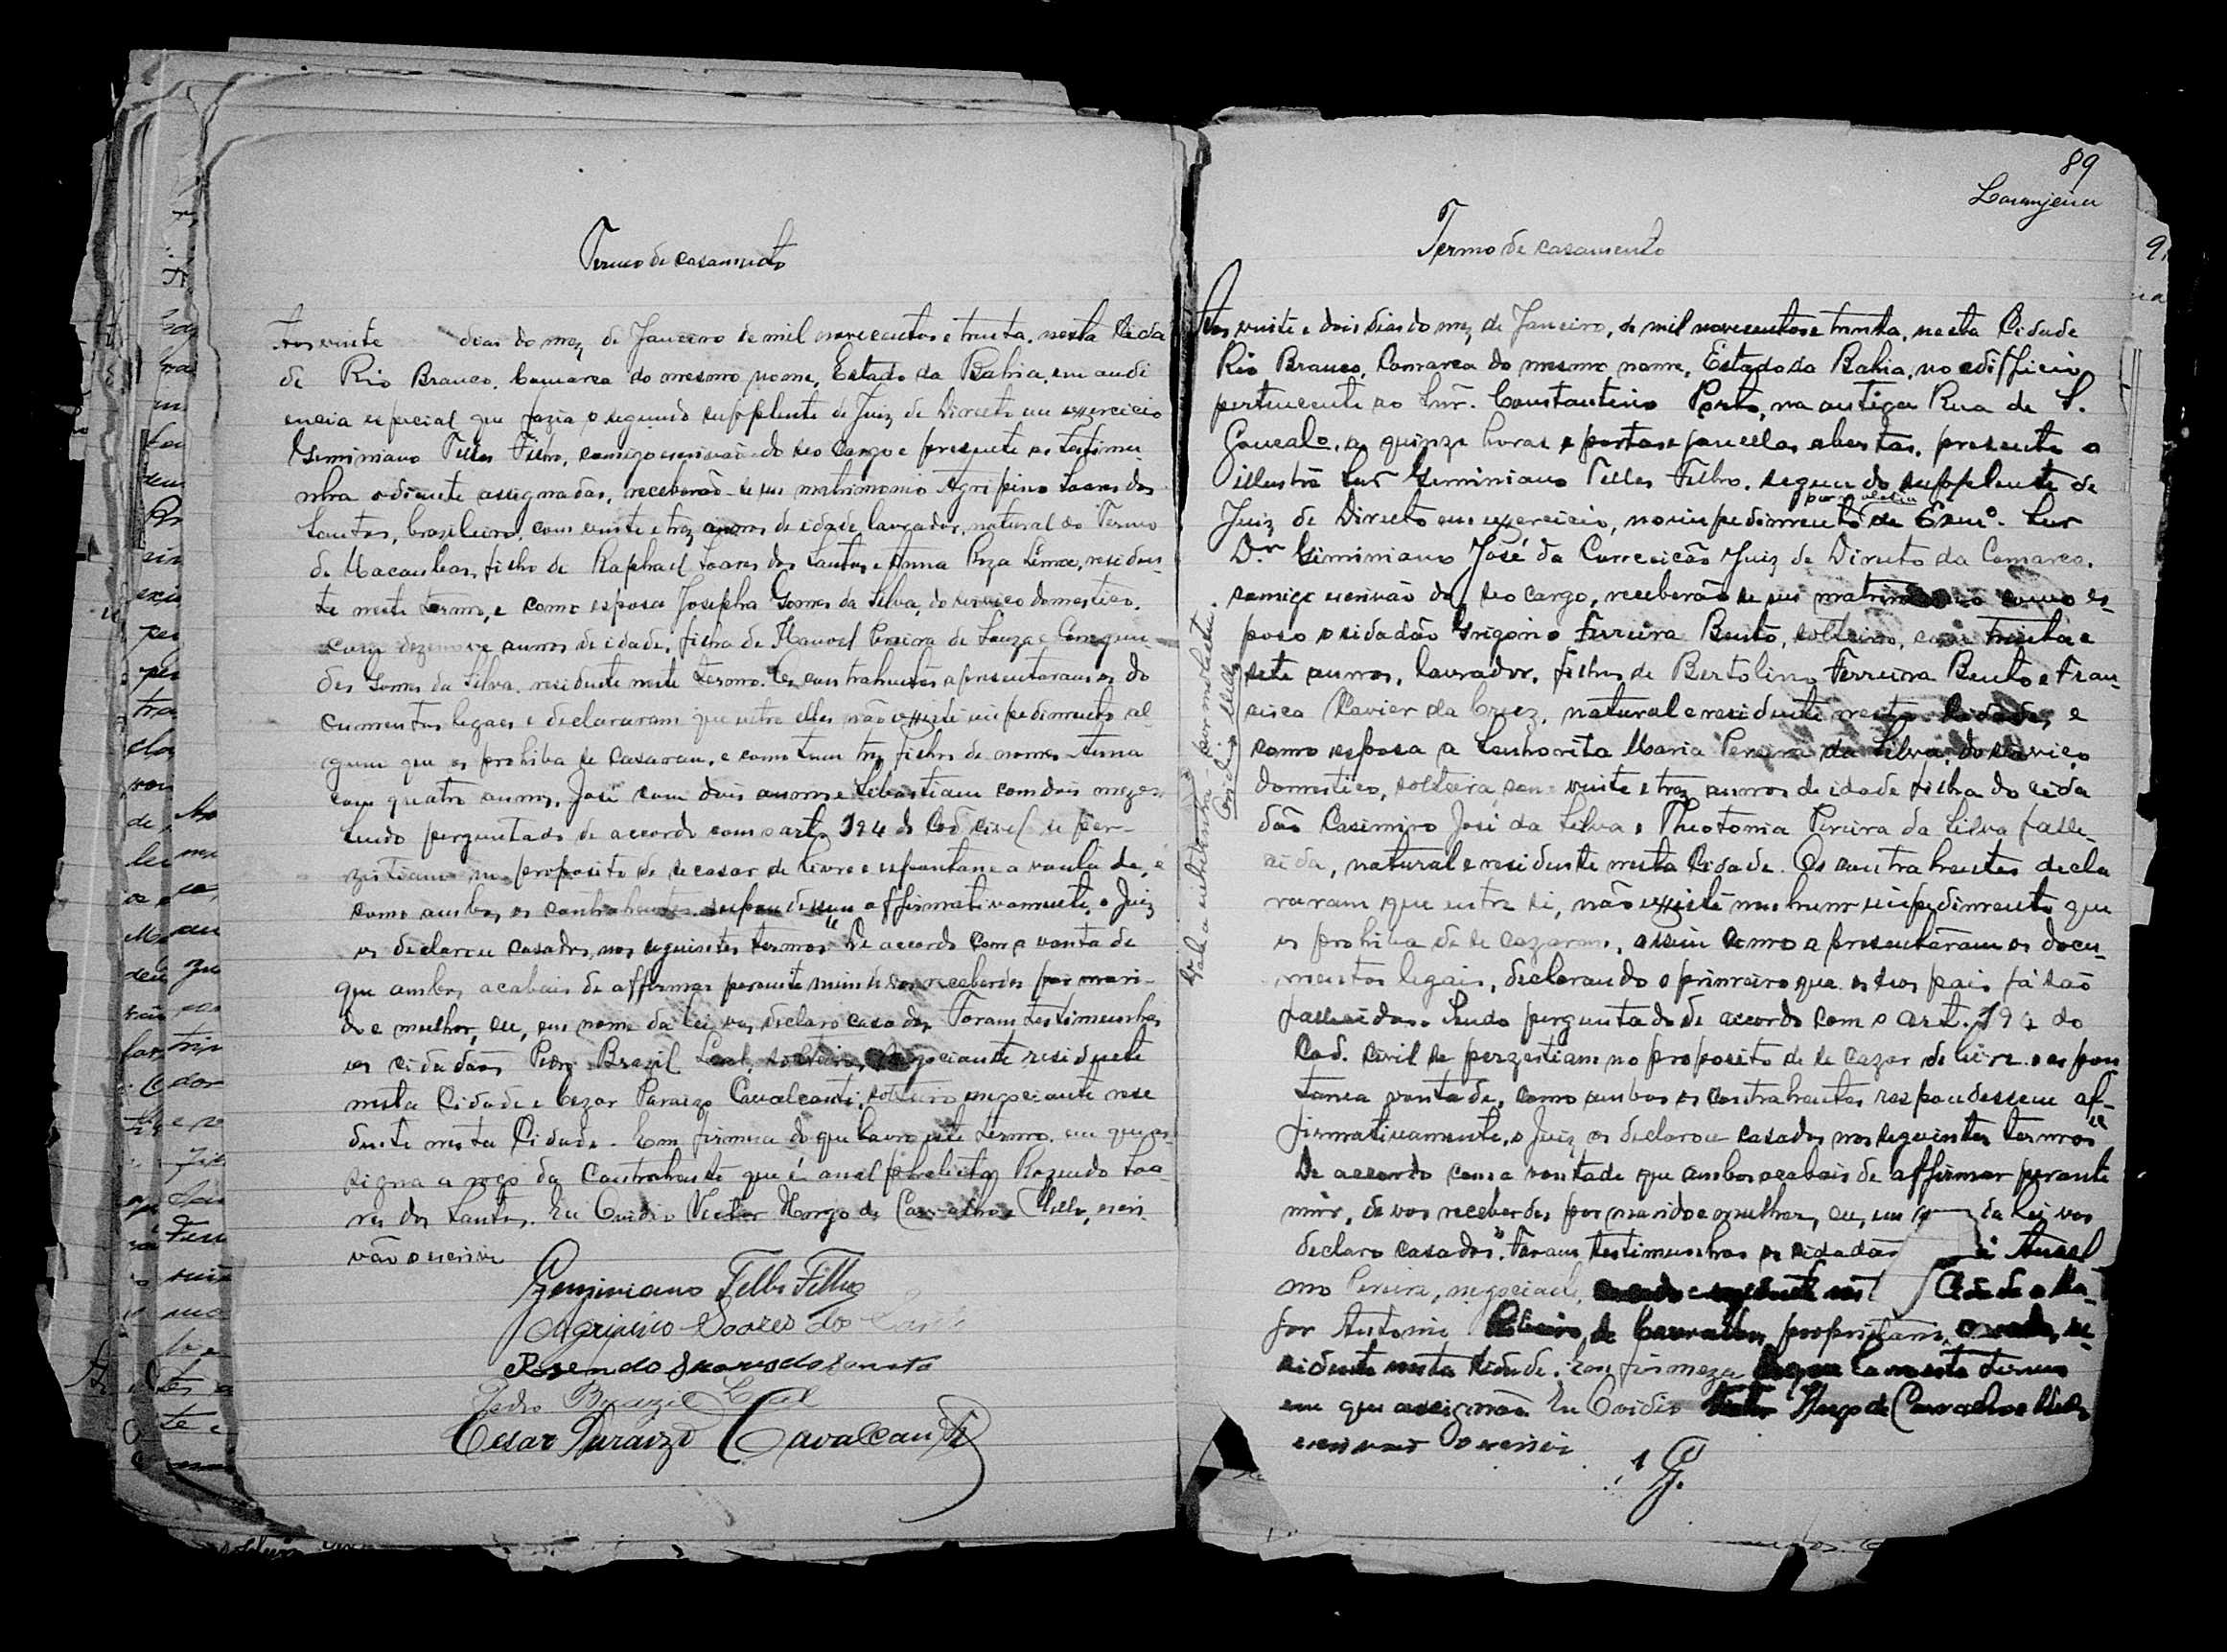 Termo de casamento
Aos vinte dias do mez de Janeiro de mil novecentos e trinta, nesta Cida
de Rio Branco, Comarca do mesmo nome, Estado da Bahia, em audi
encia especial que fazia o segundo supplente de Juiz de Direito em exercicio
Geminiano Telles Filho, comigo escrivão do seo cargo e presente as testimu
nha adiante assignadas, receberão-se em matrimonio Agripino Soares dos
Santos, brasileiro, com vinte e trez annos de idade, lavrador, natural do Termo
de Macaubas, filho de Raphael Soares dos Santos e Anna Roza residen-
te neste termo, e como esposa Josepha Gomes da Silva, do serviço domestico,
com dezenove annos de idade, filha de Manoel Pereira de Souza e
des Gomes da Silva, residente neste termo. Os contrahentes apresentaram os do
cumentos legaes e declararam que entre elles não existe impedimento al-
gum que os prohiba se casaram, e como tem trez filhos de nomes Anna
com quatro annos, José com dois annos e Sebastiana com dois mezes,
Sendo perguntado de accordo com o artº 194 do Cod. civel se per-
zistiam no proposito de se casar de livre e espontanea vontade, e
como ambos os contrahentes respondessem affirmativamente, o Juiz
os declarou casados, nos seguintes termos "De accordo com a vontade
que ambos acabais de affirmar perante mim de vos receberdes por mari-
do e mulher, eu, em nome da lei, vos declaro casados. Foram testimunhas
os cidadãos Pedro Brazil Leal, solteiro, negociante residente
nesta Cidade e Cezar Paraizo Cavalcanti, solteiro negociante rese
dente nesta Cidade. Em firmeza do que lavro este termo em que as-
signa a rogo da Contrahente que é analphabeta Rozendo Soa-
res dos Santos. Eu Ovidio Victor Hugo de Carvalho e Mello, escri
vão o escrevi
Geminiano Telles Filho
Agripino Soares dos
Rosendo Soares do Santo
Pedro Brazil Leal
Cesar Paraizo Cavalcanti
89
Laranjeira
Termo de casamento
Aos vinte e dois dias do mez de Janeiro, de mil novecentos e trinta, nesta Cidade
Rio Branco, Comarca do mesmo nome, Estado da Bahia, no edifficio
pertencente ao Snr. Constantino Porto, na antiga Rua de S.
Goncalo, as quinze horas e portas e janellas abertas, presente o
illustre Snr Geminiano Telles Filho, segundo supplente de
Juiz de Direito em exercicio, no impedimento por molestia do Exmº. Snr
Dr. Geminiano José da Conceicão Juiz de Direito da Comarca,
comigo escrivão do seo cargo, receberão se em matrimonio como es-
poso o cidadão Grigorio Ferreira Bento, solteiro, com trinta e
sete annos, lavrador, filho de Bertolino Ferreira Bento e Fran-
cisca Xavier da Cruz, natural e residente nesta Cidade, e
como esposa a Senhorita Maria Pereira da Silva, do serviço
domestico, solteira, com vinte e trez annos de idade filha do cida
dão Casimiro José da Silva e Theotonia Pereira da Silva falle-
cida, natural e residente nesta Cidade. Os contrahentes decla
raram que entre si, não existe nenhum impedimento que
os prohiba de se cazarem, assim como apresentaram os docu-
mentos legais, declarando o primeiro que os seos pais já são
fallecidos. Sendo perguntado de accordo com o art. 194 do
Cod. Civil se perzestiam no proposito de se cazar de livre e espon
tanea vontade, como ambos os contrahentes respondessem af-
firmativamente, o Juiz os declarou casados nos seguintes termos "
De accordo com a vontade que ambos acabais de affirmar perante
mim, de vos receberdes por marido e mulher, eu, em da Lei vos
declaro casados". Foram testimunhas os cidadãos Ansel
mo Pereira, negociante, casado e residente nest Cidade e Ma-
jor Antonio Ribeiro de Carvalho, proprietario, casado, re-
sidente nesta Cidade. Em firmeza do que lavro este termo
em que assignão Eu Ovidio Victor Hugo de Carvalho e Mello
escrivão o escrevi
Vale a entrelinha - por molestia.
Ovidio Mello